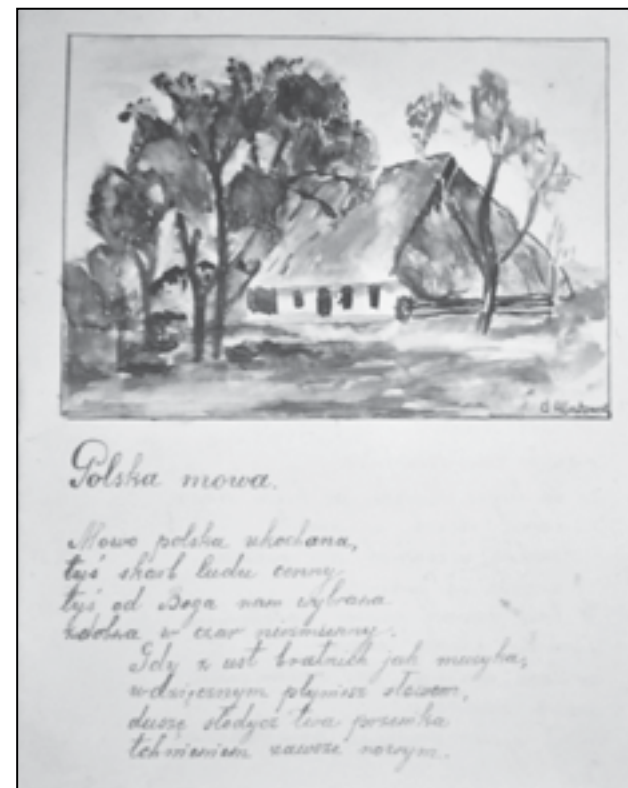 Polska mowa.
Mowo polska ukochana,
tyś skarb ludu cenny
tyś od Boga nam wybrana
w czar niezmienny.
Gdy z ust bratnich jak muzyka,
wdzięcznym płyniesz słowem,
duszę słodycz twa przenika
tchnieniem zawsze nowym.